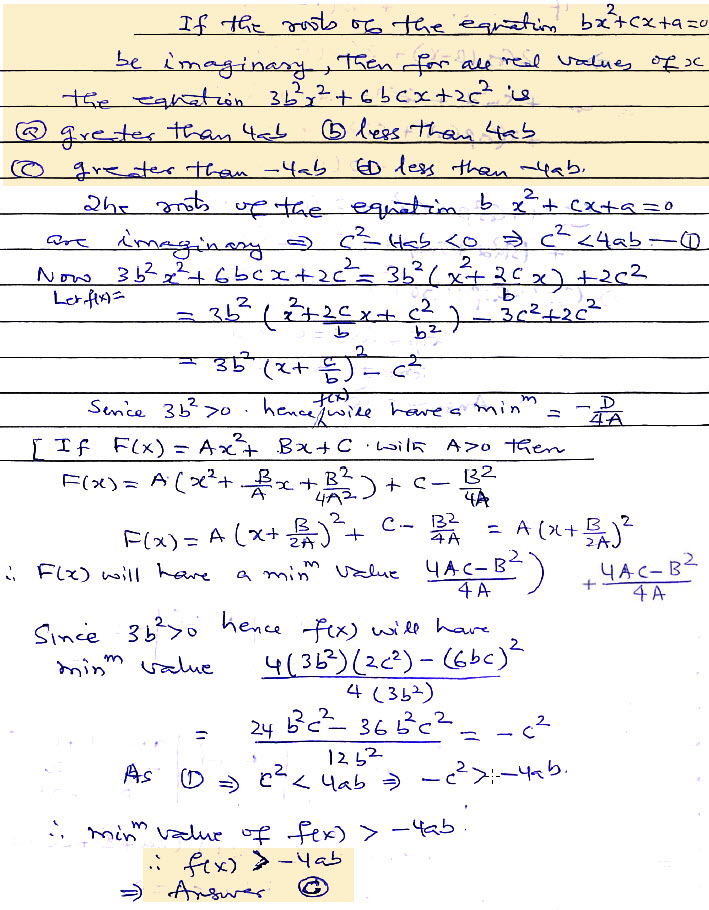 If the roots of the equation bx²+cx+a=0
be imaginary, then for all real values of x
the equation 3b²x²+6bcx+2c² is
(a) greater than 4ab (b) less than 4ab
(c) greater than -4ab (d) less than -4ab.
The roots of the equation bx²+cx+a=0
are imaginary ⇒ c²-4ab<0 ⇒ c²<4ab —①
Now 3b²x²+6bcx+2c² = 3b²(x²+2c/b x)+2c²
Let f(x)=
= 3b²(x²+2c/b x+c²/b²)-3c²+2c²
= 3b²(x+c/b)²-c²
Sence 3b²>0. hence f(x) will have a minᵐ = -D/4A
[If F(x)=Ax²+Bx+C. with A>0 then
F(x)=A(x²+B/A x+B²/4A²)+C-B²/4A
F(x)=A(x+B/2A)²+C-B²/4A = A(x+B/2A)²
+ 4AC-B²/4A
∴ F(x) will have a minᵐ value 4AC-B²/4A)
Since 3b²>0 hence f(x) will have
minᵐ value 4(3b²)(2c²)-(6bc)²/4(3b²)
= 24b²c²-36b²c²/12b² = -c²
As ① ⇒ c²<4ab ⇒ -c²>-4ab.
∴ minᵐ value of f(x) > -4ab.
∴ f(x) > -4ab
⇒ Answer (C)